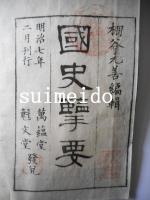 棚谷元善編輯
國史擥要
萬蘊堂
魁文堂 發兌
明治七年
二月刊行
suimeido